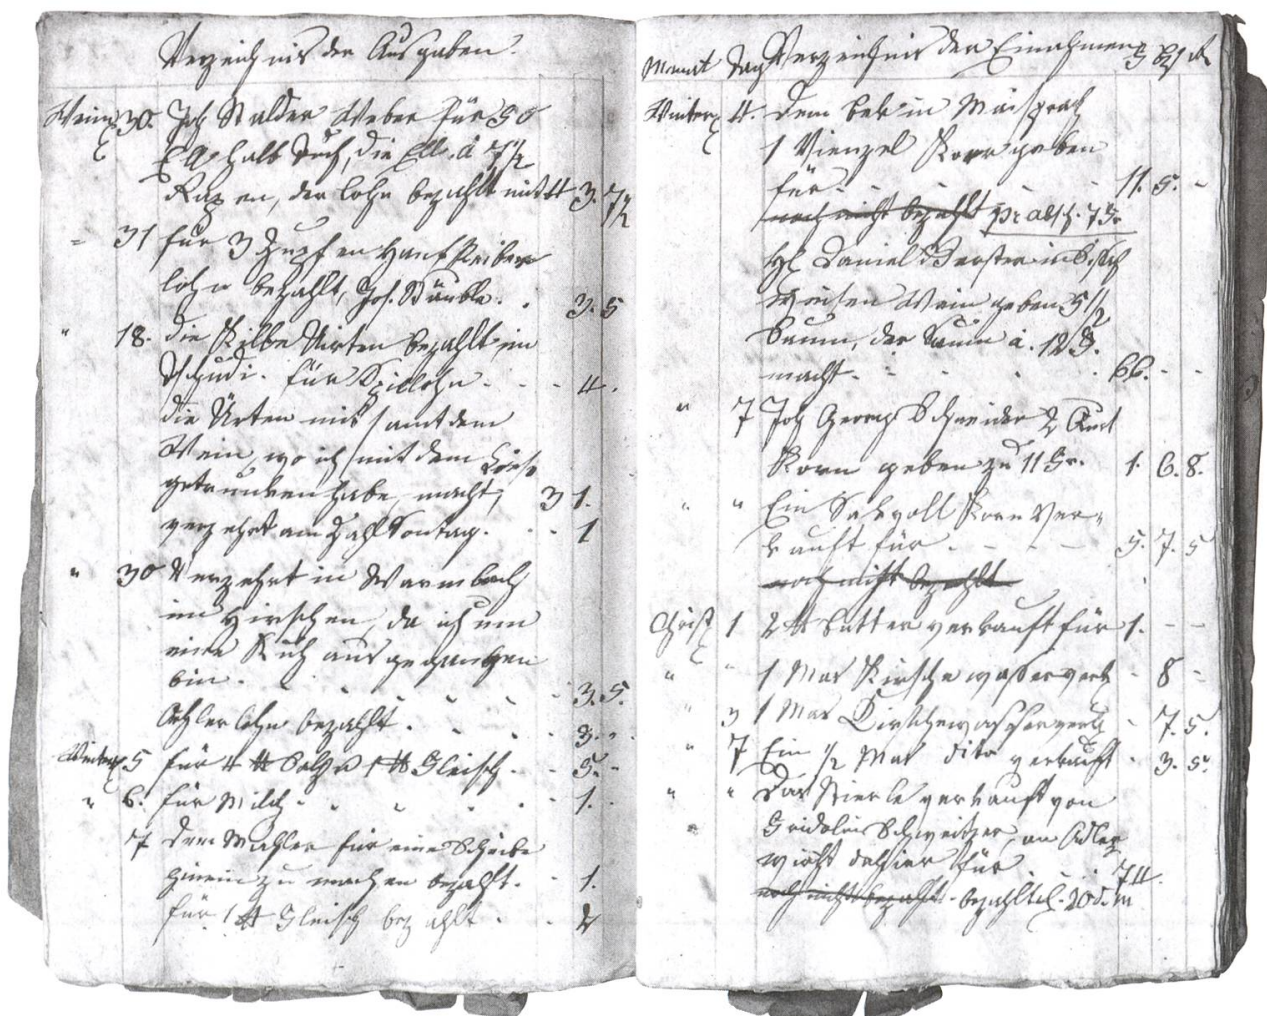 Verzeichnis der Ausgaben.
Weinm 30. Joh Stalder Weber für 50
Ell halb Tuch, die Ell. à 7½
Rapen, den lohn bezahlt mit 4 3. 7½
" 31 für 3 Zupfen Hanf Reiber
lohn bezahlt, Jos. Stäuble. . 3. 5
" 18. die Kilbe Ürten bezahlt im
Tschudi. für Spillohn. - - 4.
die Ürten mit samt dem
Wein, wo ich mit dem
getrunken habe, macht, 3 1.
verzehrt am Zahl Sontag. - 1
" 30 Verzehrt in Warmbach
im Hirschen, da ich um
eine Kuh aus gegangen
bin. - - - 3. 5.
Öhler lohn bezahlt. - - 3. -
Winterm 5 für 4 ℔ Salz u 1 ℔ Fleisch - 5. -
" 6. für Milch - - - 1. -
" 7 dem Mahler für eine Scheibe
hinein zu machen bezahlt. - 1.
für 1 ℔ Fleisch bezahlt - - 2
Monat Tag Verzeichnis der Einahmen
Winterm 4. dem bek in Maisprach
1 Vienzel Korn geben
für - - - 11. 5. -
noch nicht bezahlt
Daniel Gerster in
weisen Wein geben 5½
Saum, der Saum à. 12
macht. - - - 66. - -
" 7 Joh Georg Schneider 2
Korn geben zu 11 1. 6. 8.
" " Ein Sakvoll Korn Ver-
kauft für - - - 5. 7. 5
noch nicht bezahlt
Christ 1 2 ℔ butter verkauft für 1. - -
" " 1 Mas Kirschewasser verk - 8 -
" 3 1 Mas Kirschewasser verk - 7. 5.
" 7 Ein ½ Mas dito verkauft - 3. 5.
" " Das Stierle verkauft von
Fridolin Schweitzer, an Adler
wirth dahier für - - 74.
noch nicht bezahlt. bezahlt d. 20 d. m